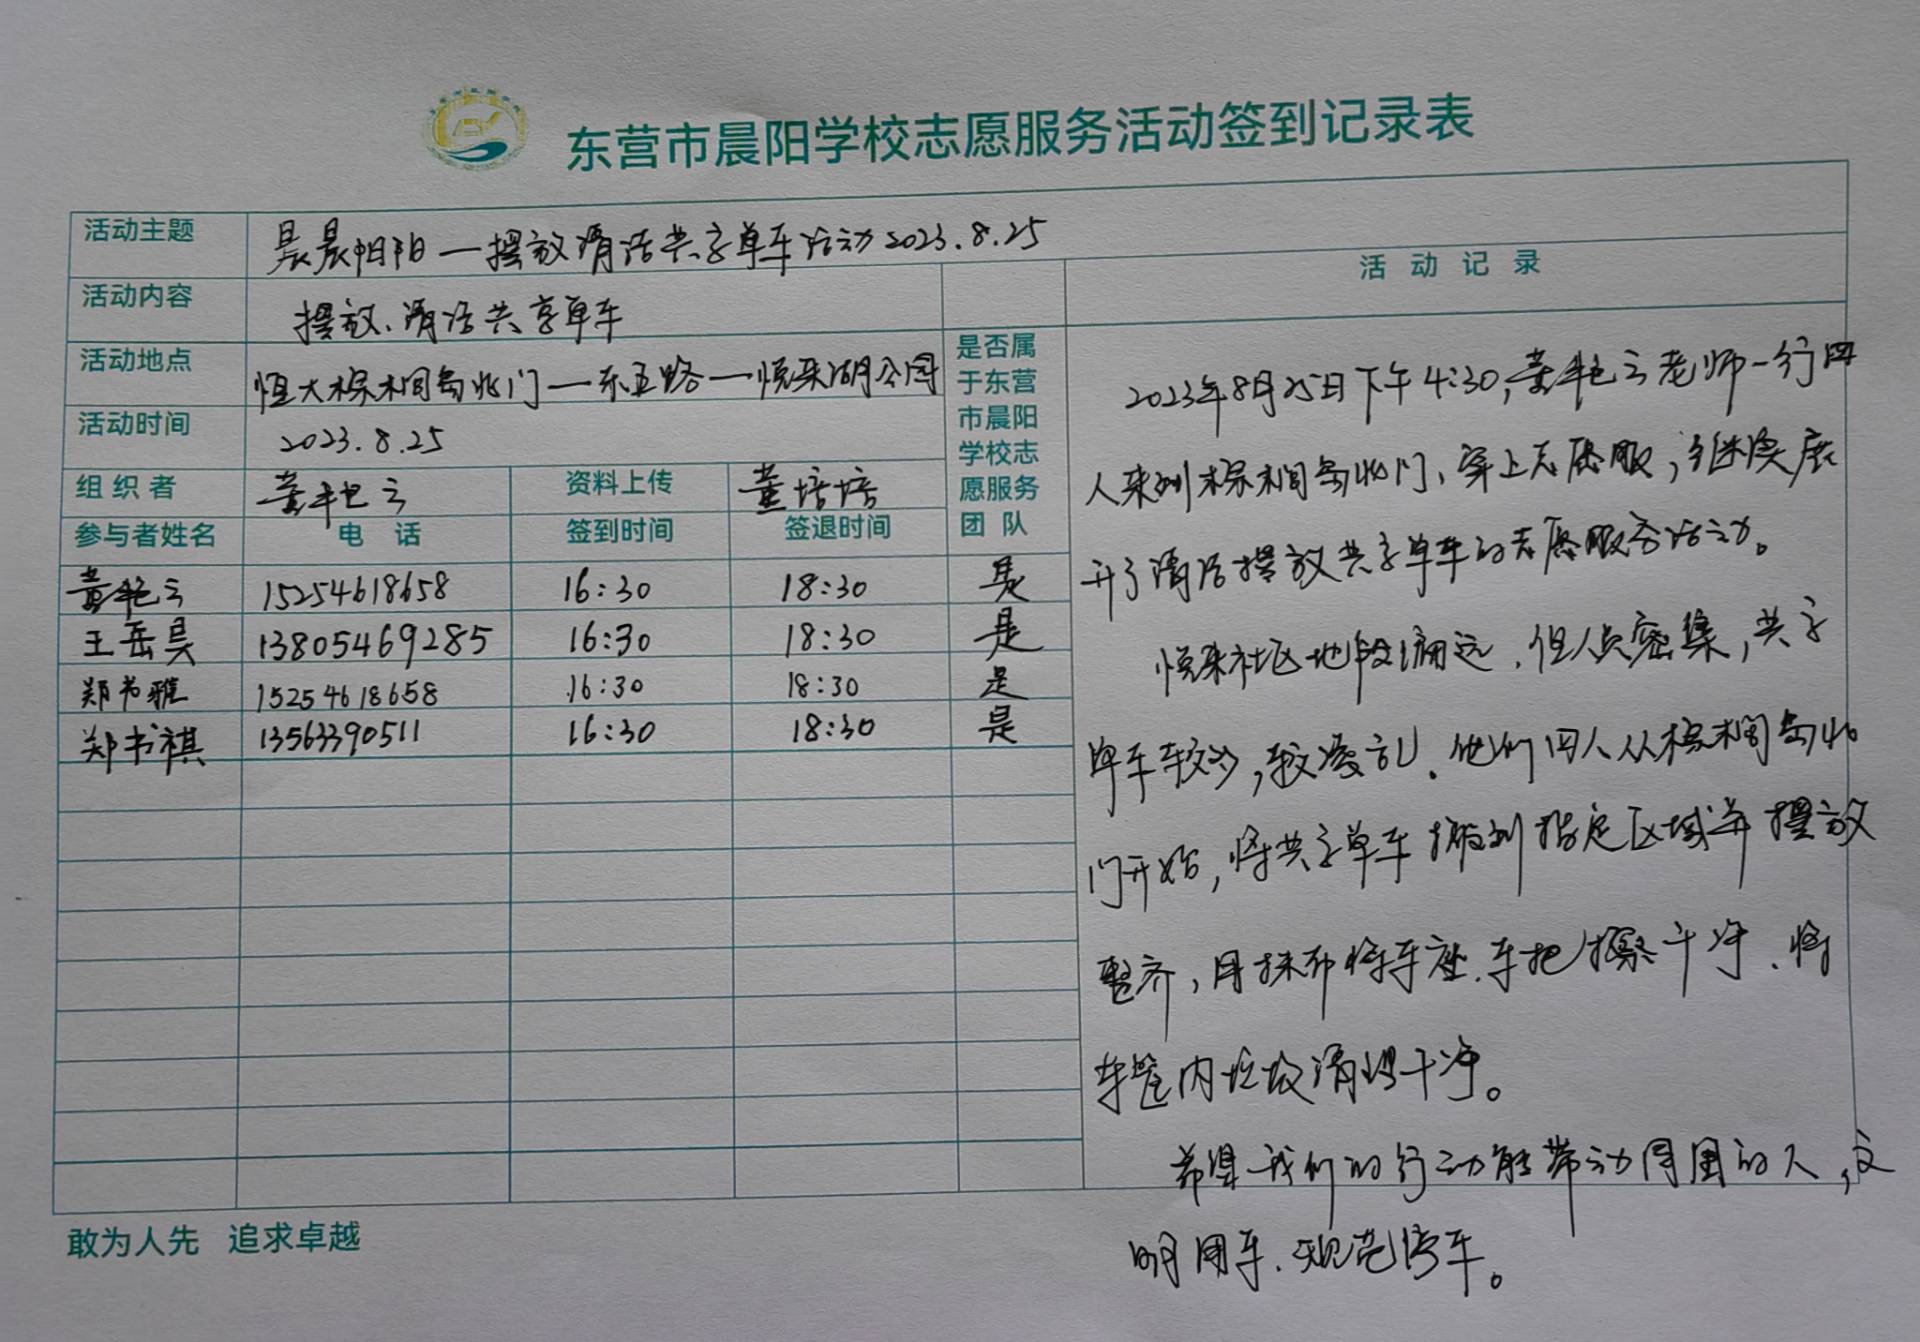 东营市晨阳学校志愿服务活动签到记录表
活动主题 晨晨阳阳—摆放清洁共享单车活动2023.8.25
活动记录
活动内容 摆放、清洁共享单车
活动地点 恒大棕榈岛北门—东五路—悦来湖公园
活动时间 2023.8.25
是否属
于东营
市晨阳
学校志
愿服务
团队
组织者 董艳云 资料上传 董培培
参与者姓名 电话 签到时间 签退时间
董艳云 15254618658 16:30 18:30 是
王岳昊 13805469285 16:30 18:30 是
郑书雅 15254618658 16:30 18:30 是
郑书祺 13563390511 16:30 18:30 是
2023年8月25日下午4:30,董艳云老师一行四
人来到棕榈岛北门、穿上志愿服,继续展
开了清洁摆放共享单车的志愿服务活动。
悦来社区地段偏远、但人员密集,共享
单车较多,较凌乱、他们四人从棕榈岛北
门开始,将共享单车搬到指定区域并摆放
整齐,用抹布将车座、车把擦干净、将
车筐内垃圾清理干净。
希望我们的行动能带动周围的人,文
明用车、规范停车。
敢为人先 追求卓越